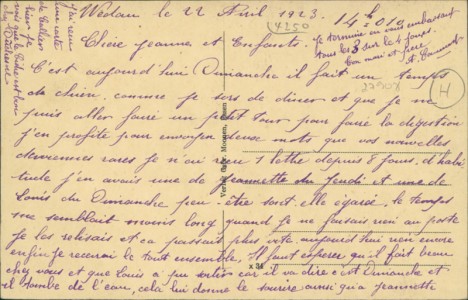 Wedau le 22 Avril 1923.
Chère Jeanne et Enfants.
C'est aujourd'hui Dimanche il fait un temps
de chien, comme je sors de dîner et que je ne
puis aller faire un petit tour pour faire la digestion
j'en profite pour envoyer deux mots que vos nouvelles
deviennent rares je n'ai reçu 1 lettre depuis 8 jours, d'habi
tude j'en avais une de Jeannette du Jeudi et une de
Louis du Dimanche peu-être sont elle égarée, le temps
me semblait moins long quand je ne faisais rien au poste
je les relisais et ça passait plus vite, aujourd'hui rien encore
enfin je recevrai le tout ensemble, Il faut espérer qu'il fait beau
chez vous et que Louis a pu sortir car il va dire c'est Dimanche et
il tombe de l'eau, cela lui donne le sourire ainsi qu'à Jeannette
Je termine en vous embrassant
tous les 3 sur les 4 joues.
Ton mari et père
J'ai reçu
une carte
hier
14250
H
x 34